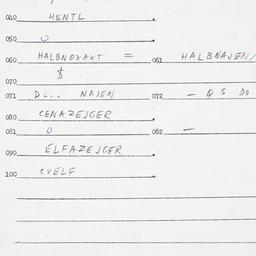 040 HENTL
050 0
060 HALBNOXAXT = 061 HALBNAJEN/
070 $
071 D... NAJEN 072 - Q S DO
080 CENAZEJGER
081 0 082 -
090 ELFAZEJGER
100 CVELF